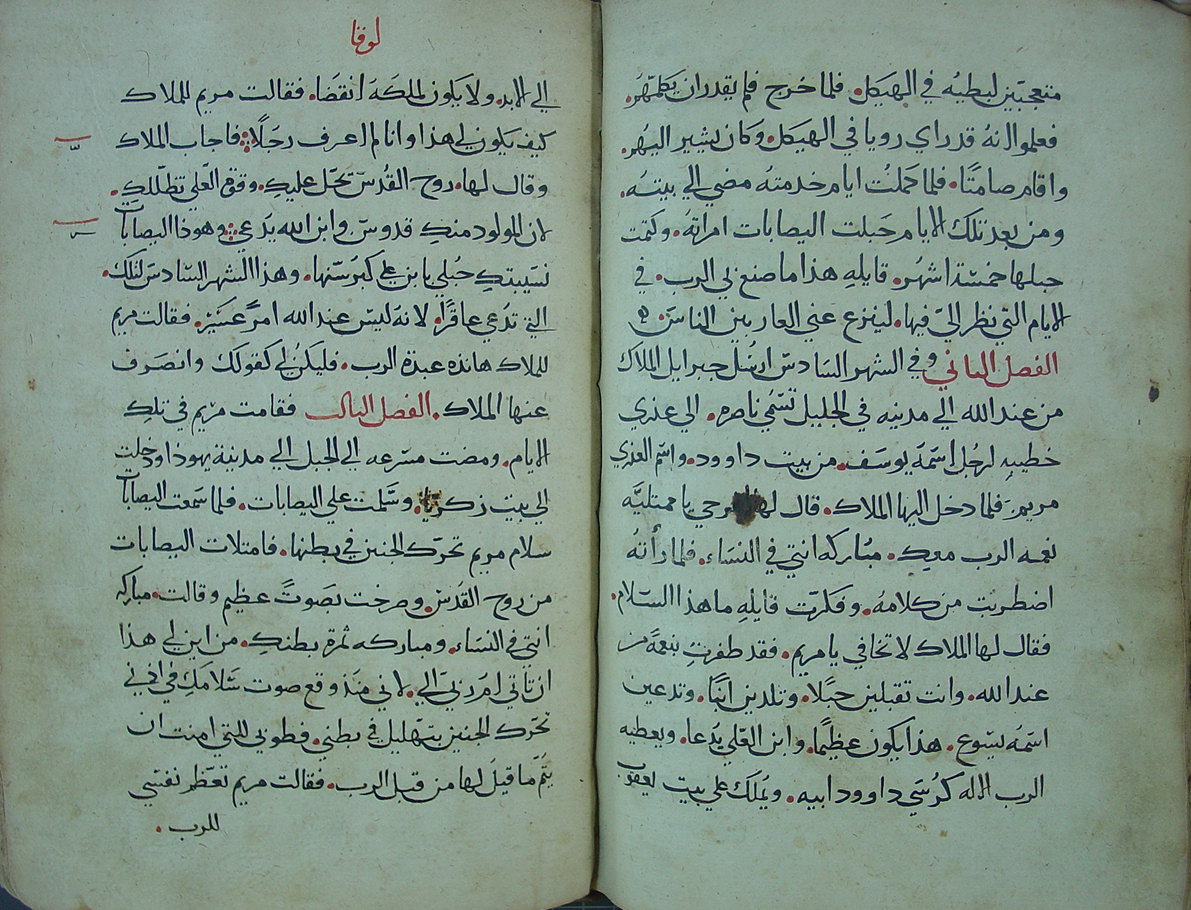 متعجبين لبطيه في الهيكل. فلما خرج فلم يقدر ان يكلمهم.
فعلموا انه قد راي رويا في الهيكل. وكان يشير اليهم.
واقام صامتًا. فلما كملت ايام خدمته مضي الي بيته.
ومن بعد تلك الايام حبلت اليصابات امراته. وكتمت
حبلها خمسة اشهر. قايله هذا ما صنع بي الرب. في
الايام التي نظر اليّ فيها. لينزع عني العار بين الناس
الفصل الثاني وفي الشهر السادس ارسل جبرايل الملاك
من عند الله الي مدينه في الجليل تسمي ناصره. الي عذري
خطيبه لرجل اسمه يوسف. من بيت داوود. واسم العذري
مريم. فلما دخل اليها الملاك. قال لها افرحي يا ممتليه
نعمه الرب معك. مباركه انتي في النساء. فلما رأته
اضطربت من كلامه. وفكرت قايله ما هذا السلام.
فقال لها الملاك لا تخافي يا مريم. فقد ظفرت بنعمة من
عند الله. وانت تقبلين حبلًا. وتلدين ابنًا. وتدعين
اسمه يسوع. هذا يكون عظيمًا. وابن العلي يدعا. ويعطيه
الرب الاله كرسي داوود ابيه. ويملك علي بيت يعقوب
لوقا
الي الابد. ولا يكون لملكه انقضا. فقالت مريم للملاك
كيف يكون لي هذا وانا لم اعرف رجلًا. فاجاب الملاك
وقال لها. روح القدس تحل عليك. وقوة العلي تظللك.
لان المولود منك قدوس وابن الله يدعي. وهوذا اليصابات
نسيبتك حبلي بابن علي كبر سنها. وهذا الشهر السادس لتلك.
التي تدعي عاقرًا. لانه ليس عند الله امرً عسير. فقالت مريم
للملاك هانذه عبدة الرب. فليكن لي كقولك وانصرف
عنها الملاك. الفصل الثالث فقامت مريم في تلك
الايام. ومضت مسرعه الي الجبل الي مدينة يهوذا ودخلت
الي بيت زكريا. وسلمت علي اليصابات. فلما سمعت اليصابات
سلام مريم تحرك الجنين في بطنها. فامتلات اليصابات
من روح القدس. وصرخت بصوتً عظيم وقالت. مباركه
انتي في النساء. ومباركه ثمرة بطنك. من اين لي هذا
ان تاتي ام ربي الي. لاني منذ وقع صوت سلامك في اذني
تحرك الجنين بتهليل في بطني. فطوبي للتي امنت ان
يتم ما قيل لها من قبل الرب. فقالت مريم تعظم نفسي
للرب.